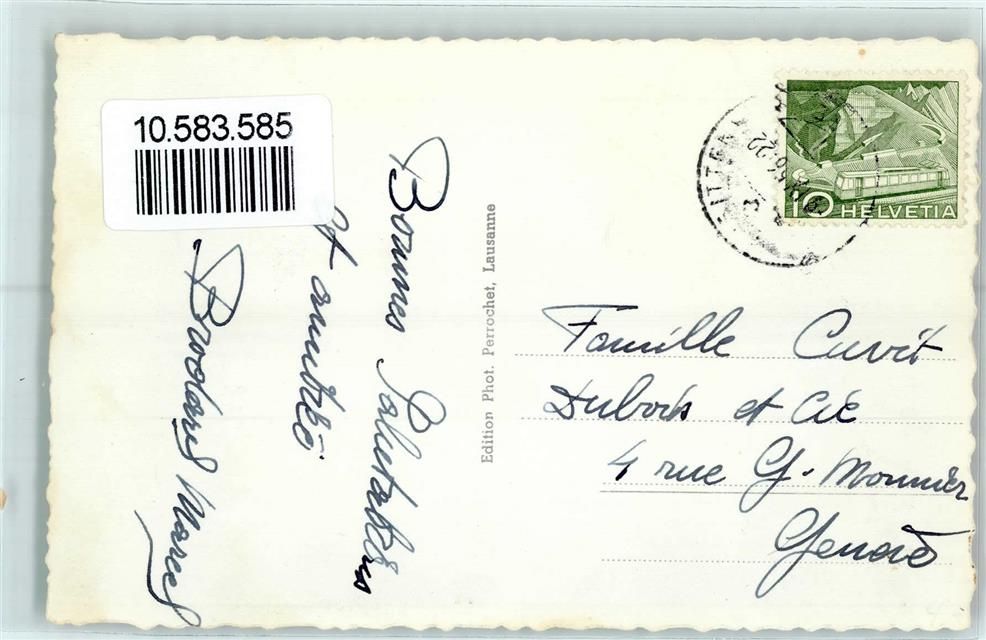 10.583.585
Bonnes Salutations
et amitié
Brodard Marcel
Edition Phot. Perrochet, Lausanne
10 HELVETIA
Famille Cuvit
Dubois et Cie
4 rue G. Monnier
Genève